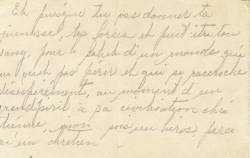 Eh puisque tu vas donner ta
jeunesse, tes forces et peut être ton
sang, pour le salut d'un monde qui
ne veut pas périr et qui se raccroche
désespérément, au moment d'un
grand péril à sa civilisation chré
tienne, sois un héros, parce
un chrétien